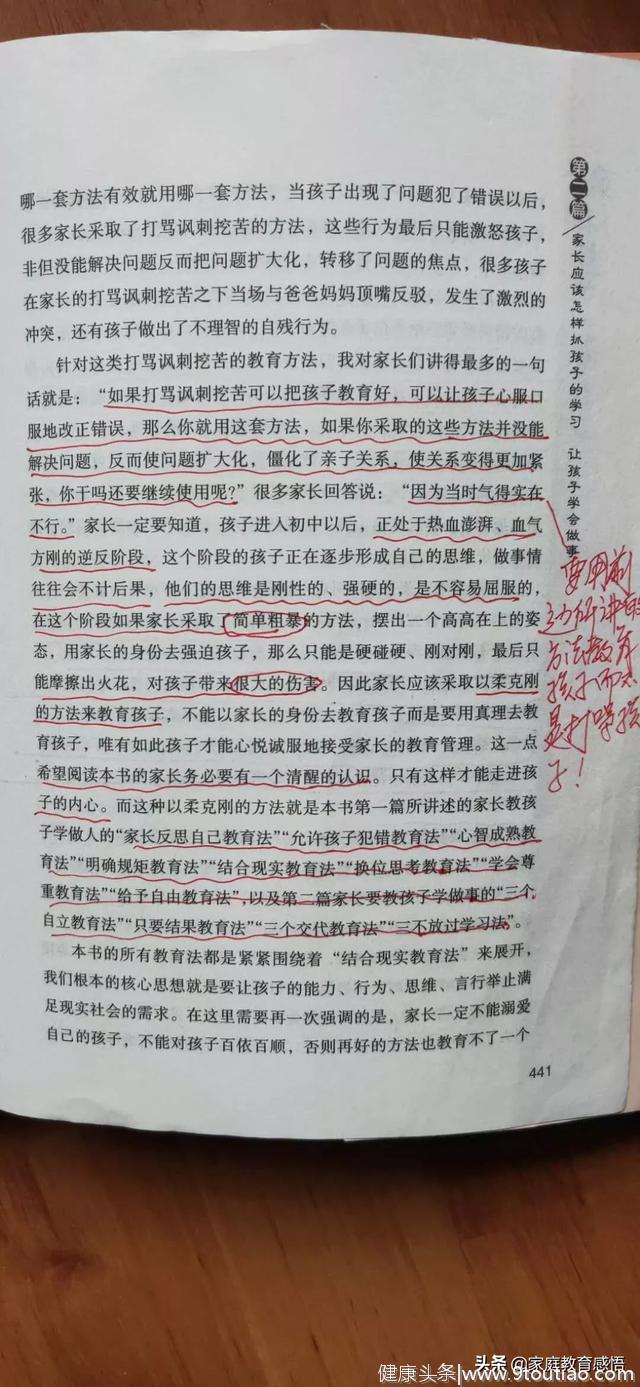 哪一套方法有效就用哪一套方法，当孩子出现了问题犯了错误以后，
很多家长采取了打骂讽刺挖苦的方法，这些行为最后只能激怒孩子，
非但没能解决问题反而把问题扩大化，转移了问题的焦点，很多孩子
在家长的打骂讽刺挖苦之下当场与爸爸妈妈顶嘴反驳，发生了激烈的
冲突，还有孩子做出了不理智的自残行为。
针对这类打骂讽刺挖苦的教育方法，我对家长们讲得最多的一句
话就是：“如果打骂讽刺挖苦可以把孩子教育好，可以让孩子心服口
服地改正错误，那么你就用这套方法，如果你采取的这些方法并没能
解决问题，反而使问题扩大化，僵化了亲子关系，使关系变得更加紧
张，你干吗还要继续使用呢？”很多家长回答说：“因为当时气得实在
不行。”家长一定要知道，孩子进入初中以后，正处于热血澎湃、血气
方刚的逆反阶段，这个阶段的孩子正在逐步形成自己的思维，做事情
往往会不计后果，他们的思维是刚性的、强硬的，是不容易屈服的，
在这个阶段如果家长采取了简单粗暴的方法，摆出一个高高在上的姿
态，用家长的身份去强迫孩子，那么只能是硬碰硬、刚对刚，最后只
能摩擦出火花，对孩子带来很大的伤害。因此家长应该采取以柔克刚
的方法来教育孩子，不能以家长的身份去教育孩子而是要用真理去教
育孩子，唯有如此孩子才能心悦诚服地接受家长的教育管理。这一点
希望阅读本书的家长务必要有一个清醒的认识。只有这样才能走进孩
子的内心。而这种以柔克刚的方法就是本书第一篇所讲述的家长教孩
子学做人的“家长反思自己教育法”“允许孩子犯错教育法”“心智成熟教
育法”“明确规矩教育法”“结合现实教育法”“换位思考教育法”“学会尊
重教育法”“给予自由教育法”，以及第二篇家长要教孩子学做事的“三个
自立教育法”“只要结果教育法”“三个交代教育法”“三不放过学习法”。
本书的所有教育法都是紧紧围绕着“结合现实教育法”来展开，
我们根本的核心思想就是要让孩子的能力、行为、思维、言行举止满
足现实社会的需求。在这里需要再一次强调的是，家长一定不能溺爱
自己的孩子，不能对孩子百依百顺，否则再好的方法也教育不了一个
441
第二篇
家长应该怎样抓孩子的学习 让孩子学会做事
要用前
边所讲
方法教育
孩子而不
是打骂孩
子！
头条 @家庭教育感悟
健康头条|www.9toutiao.com